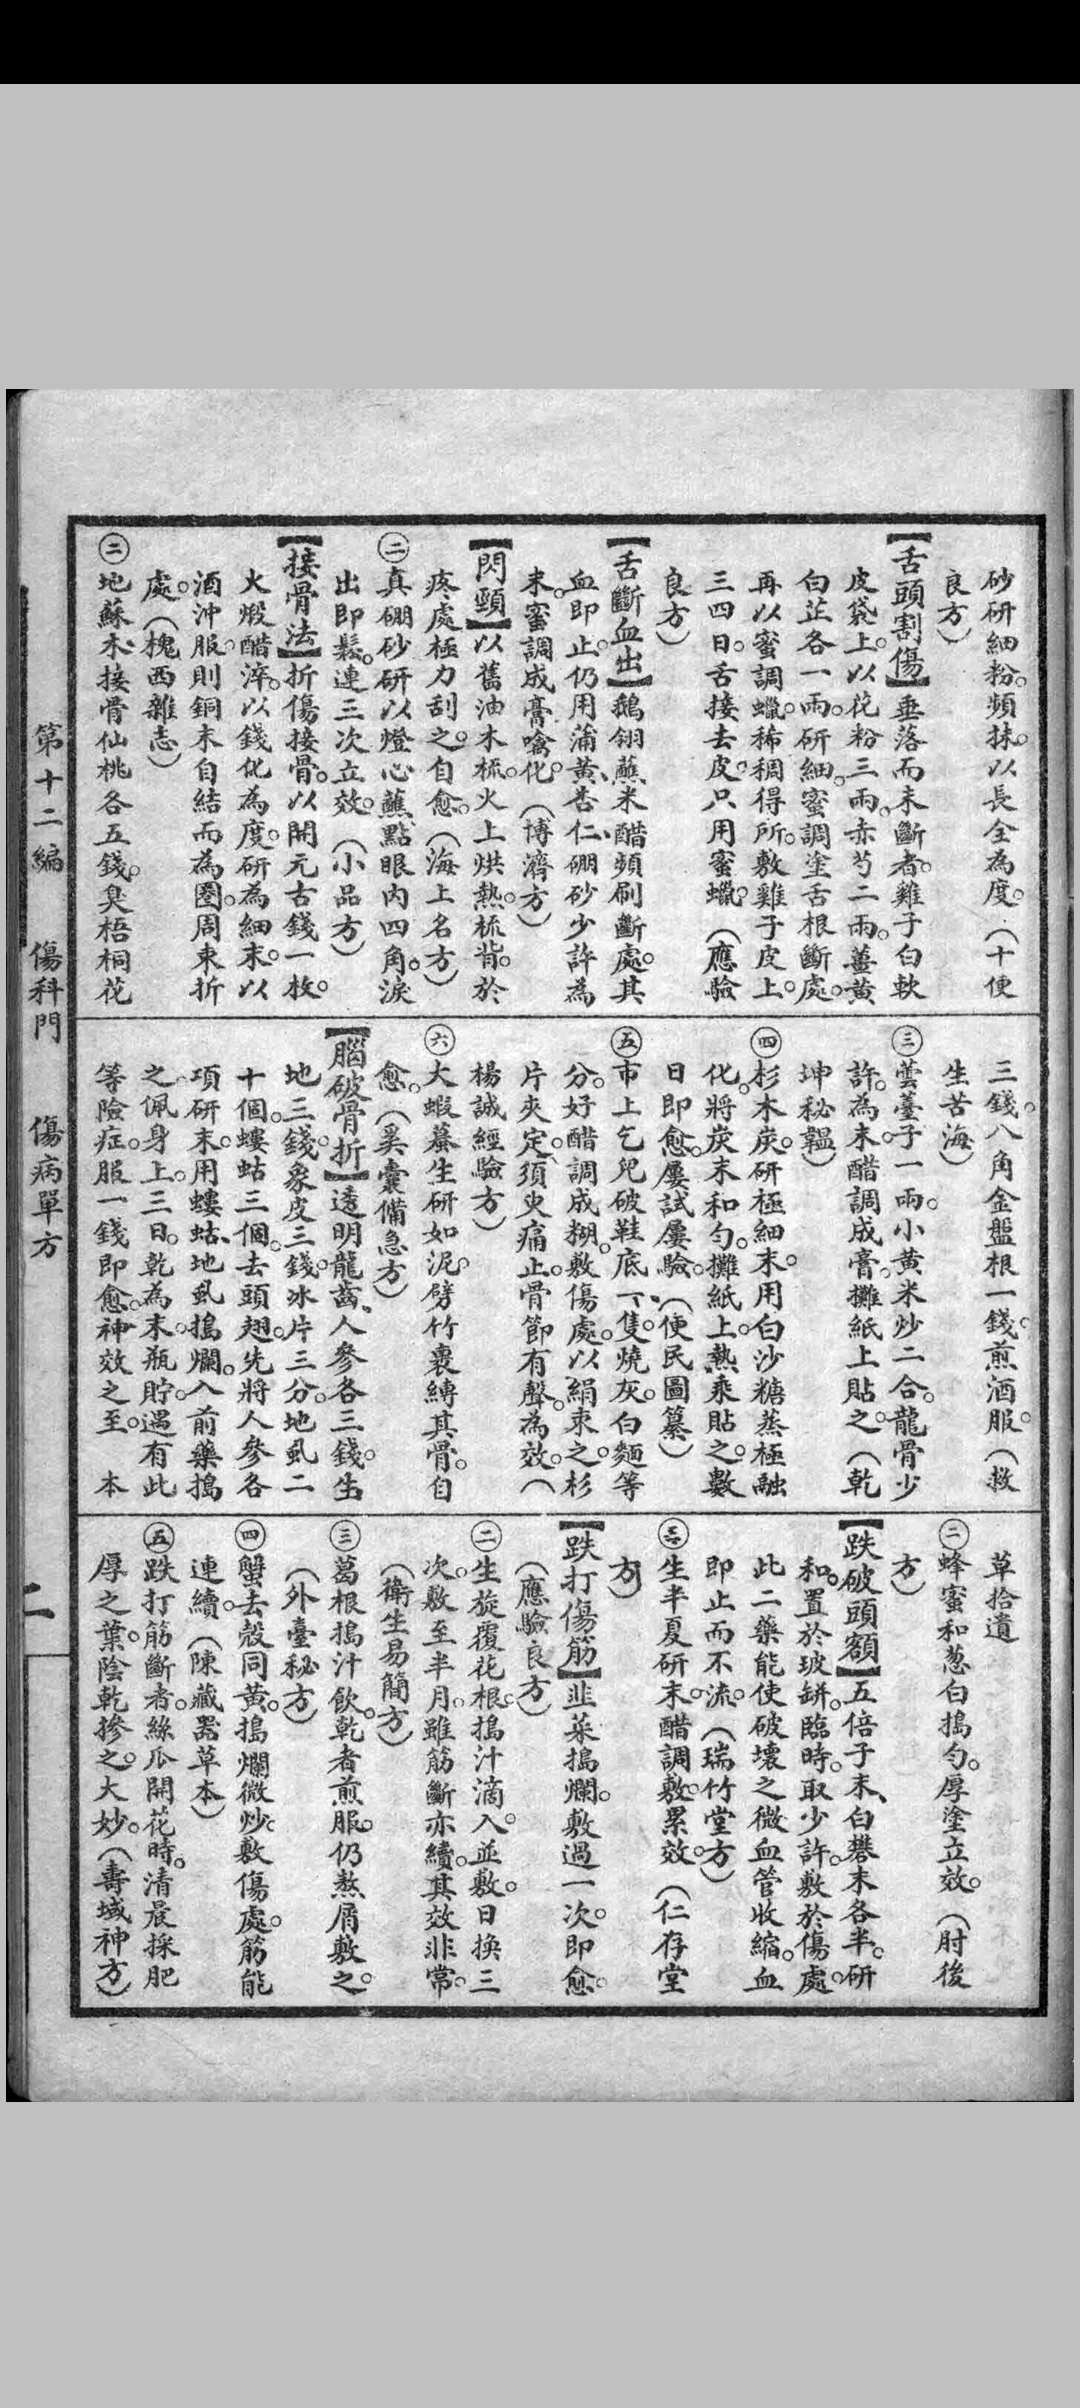 砂研細粉。頻抹。以長全為度。（十便
良方）
【舌頭割傷】垂落而未斷者。雞子白軟
皮袋上。以花粉三兩。赤芍二兩。薑黃
白芷各一兩。研細。蜜調塗舌根斷處。
再以蜜調蠟。稀稠得所。敷雞子皮上。
三四日。舌接去皮。只用蜜蠟。（應驗
良方）
【舌斷血出】鵝翎蘸米醋頻刷斷處。其
血即止。仍用蒲黃、杏仁、硼砂少許為
末。蜜調成膏噙化。（博濟方）
【閃頸】以舊油木梳。火上烘熱。梳背。於
疼處極力刮之。自愈。（海上名方）
㊁真硼砂研以燈心蘸點眼內四角。淚
出即鬆。連三次立效。（小品方）
【接骨法】折傷接骨。以開元古錢一枚。
火煅醋淬。以錢化為度。研為細末。以
酒沖服。則銅末自結而為圈。周束折
處。（槐西雜志）
㊁地蘇木、接骨仙桃各五錢。臭梧桐花
三錢。八角金盤根一錢。煎酒服。（救
生苦海）
㊂蕓薹子一兩。小黃米炒二合。龍骨少
許。為末。醋調成膏。攤紙上貼之。（乾
坤秘韞）
㊃杉木炭。研極細末。用白沙糖蒸極融
化。將炭末和勻。攤紙上。熱乘貼之。數
日即愈。屢試屢驗。（便民圖纂）
㊄市上乞兒破鞋底一隻。燒灰。白麵等
分。好醋調成糊。敷傷處。以絹束之。杉
片夾定。須臾痛止。骨節有聲。為效。（
楊誠經驗方）
㊅大蝦蟇生研如泥。劈竹裹縛其骨。自
愈。（奚囊備急方）
【腦破骨折】透明龍齒、人參各三錢。生
地三錢。象皮三錢。冰片三分。地虱二
十個。螻蛄三個。去頭翅。先將人參各
項研末。用螻蛄、地虱搗爛。入前藥搗
之。佩身上。三日。乾為末。瓶貯。遇有此
等險症。服一錢即愈。神效之至。　本
草拾遺
㊁蜂蜜和葱白搗勻。厚塗立效。（肘後
方）
【跌破頭額】五倍子末、白礬末各半。研
和。置於玻缾。臨時。取少許。敷於傷處。
此二藥能使破壞之微血管收縮。血
即止而不流。（瑞竹堂方）
㊁生半夏研末。醋調敷。累效。（仁存堂
方）
【跌打傷筋】韭菜搗爛。敷過一次。即愈。
（應驗良方）
㊁生旋覆花根。搗汁滴入。並敷。日換三
次。敷至半月。雖筋斷亦續。其效非常。
（衛生易簡方）
㊂葛根搗汁飲。乾者煎服。仍熬屑敷之。
（外臺秘方）
㊃蟹去殼同黃。搗爛微炒。敷傷處。筋能
連續。（陳藏器草本）
㊄跌打筋斷者。絲瓜開花時。清晨採肥
厚之葉。陰乾摻之。大妙。（壽域神方）
第十二編　傷科門　傷病單方
二